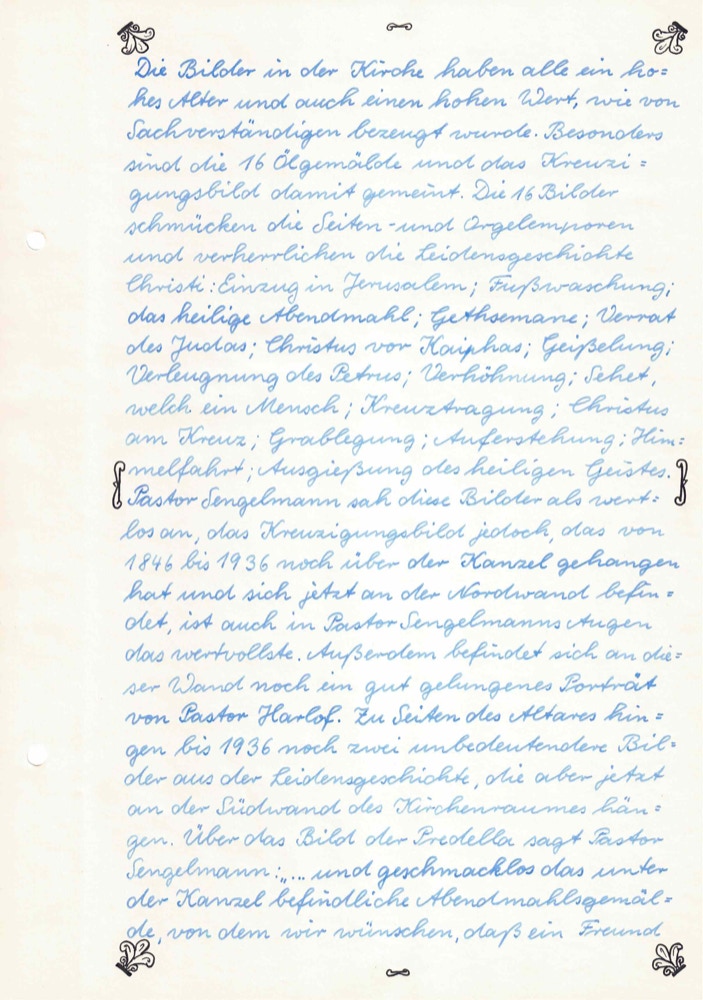 Die Bilder in der Kirche haben alle ein ho=
hes Alter und auch einen hohen Wert, wie von
Sachverständigen bezeugt wurde. Besonders
sind die 16 Ölgemälde und das Kreuzi=
gungsbild damit gemeint. Die 16 Bilder
schmücken die Seiten- und Orgelemporen
und verherrlichen die Leidensgeschichte
Christi: Einzug in Jerusalem; Fußwaschung;
das heilige Abendmahl; Gethsemane; Verrat
des Judas; Christus vor Kaiphas; Geißelung;
Verleugnung des Petrus; Verhöhnung; Sehet,
welch ein Mensch; Kreuztragung; Christus
am Kreuz; Grablegung; Auferstehung; Him=
melfahrt; Ausgießung des heiligen Geistes.
Pastor Sengelmann sah diese Bilder als wert=
los an, das Kreuzigungsbild jedoch, das von
1846 bis 1936 noch über der Kanzel gehangen
hat und sich jetzt an der Nordwand befin=
det, ist auch in Pastor Sengelmanns Augen
das wertvollste. Außerdem befindet sich an die=
ser Wand noch ein gut gelungenes Porträt
von Pastor Harlof. Zu Seiten des Altares hin=
gen bis 1936 noch zwei unbedeutendere Bil=
der aus der Leidensgeschichte, die aber jetzt
an der Südwand des Kirchenraumes hän=
gen. Über das Bild der Predella sagt Pastor
Sengelmann: „... und geschmacklos das unter
der Kanzel befindliche Abendmahlsgemäl=
de, von dem wir wünschen, daß ein Freund